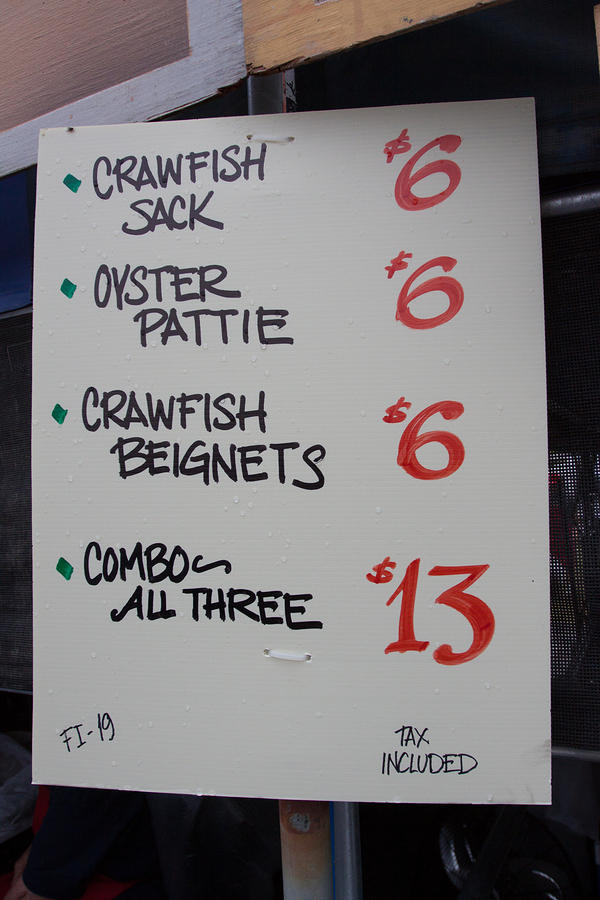 CRAWFISH $6
SACK
OYSTER $6
PATTIE
CRAWFISH $6
BEIGNETS
COMBO~ $13
ALL THREE
FI-19
TAX
INCLUDED